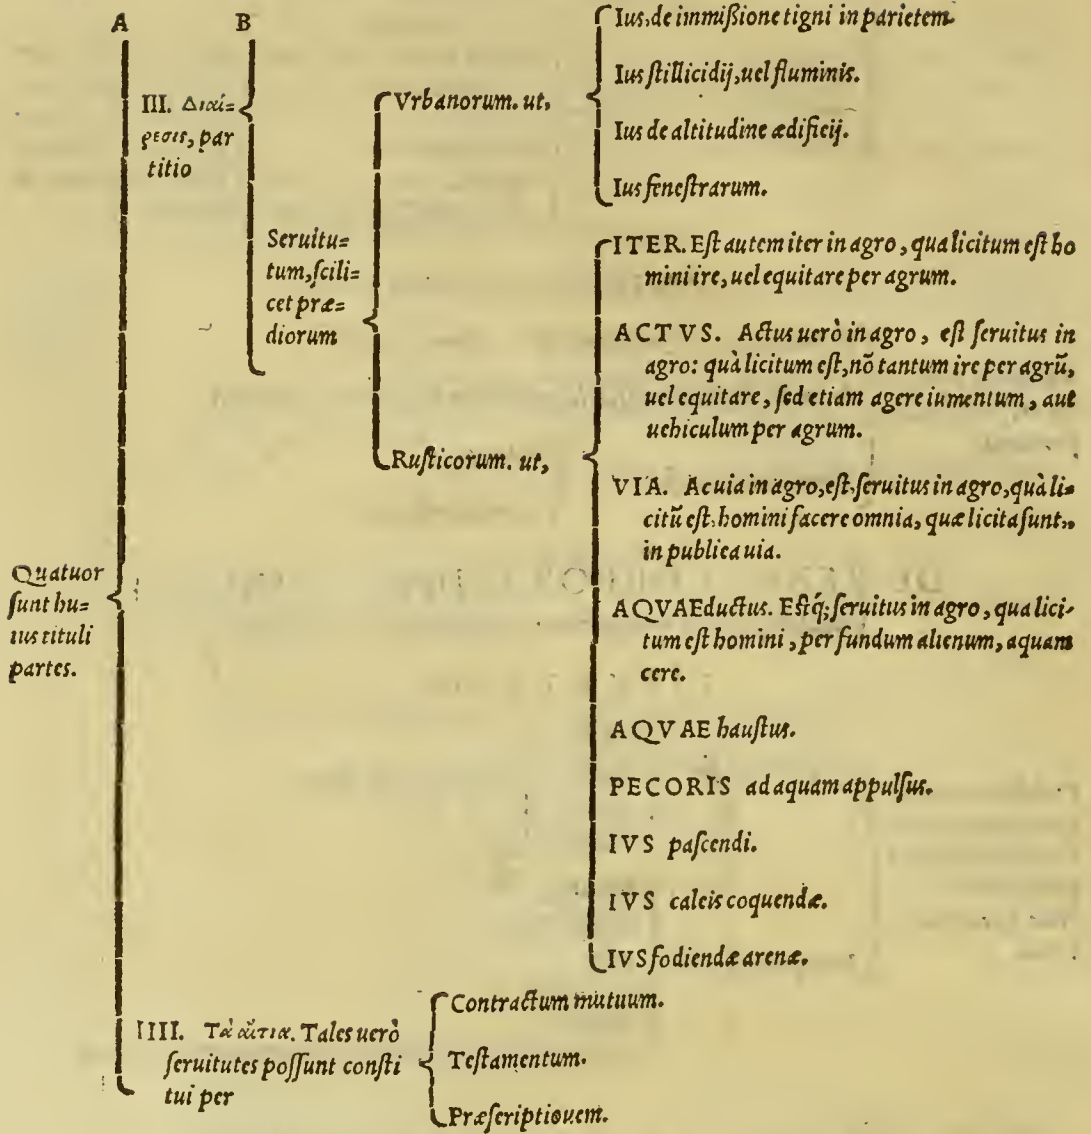 A B
Quatuor
sunt hu=
ius tituli
partes.
III. Διαί=
ρεσις, par
titio
Seruitu=
tum, scili=
cet præ=
diorum
Vrbanorum. ut,
Ius, de immißione tigni in parietem.
Ius stillicidij, uel fluminis.
Ius de altitudine ædificij.
Ius fenestrarum.
Rusticorum. ut,
ITER. Est autem iter in agro, qua licitum est ho
mini ire, uel equitare per agrum.
ACTVS. Actus uerò in agro, est seruitus in
agro: quà licitum est, nõ tantum ire per agrũ,
uel equitare, sed etiam agere iumentum, aut
uehiculum per agrum.
VIA. Ac uia in agro, est, seruitus in agro, quà li=
citũ est, homini facere omnia, quæ licita sunt,
in publica uia.
AQVAEductus. Estq́; seruitus in agro, qua lici-
tum est homini, per fundum alienum, aquam
cere.
AQVAE haustus.
PECORIS ad aquam appulsus.
IVS pascendi.
IVS calcis coquendæ.
IVS fodiendæ arenæ.
IIII. Τὰ αἴτια. Tales uerò
seruitutes possunt consti
tui per
Contractum mutuum.
Testamentum.
Præscriptionem.